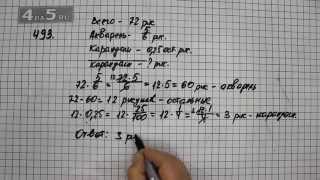 4PA5.RU
493.
Всего - 72 рис.
Акварель - 5/6 рис.
Карандаш - 0,25 ост рис.
Карандаш - ? рис.
72 · 5/6 = 72·5/6 = 12·5 = 60 рис - акварель
72 - 60 = 12 рисунков - остальные
12 · 0,25 = 12 · 25/100 = 12 · 1/4 = = 3 рис - карандаш.
Ответ: 3 ри